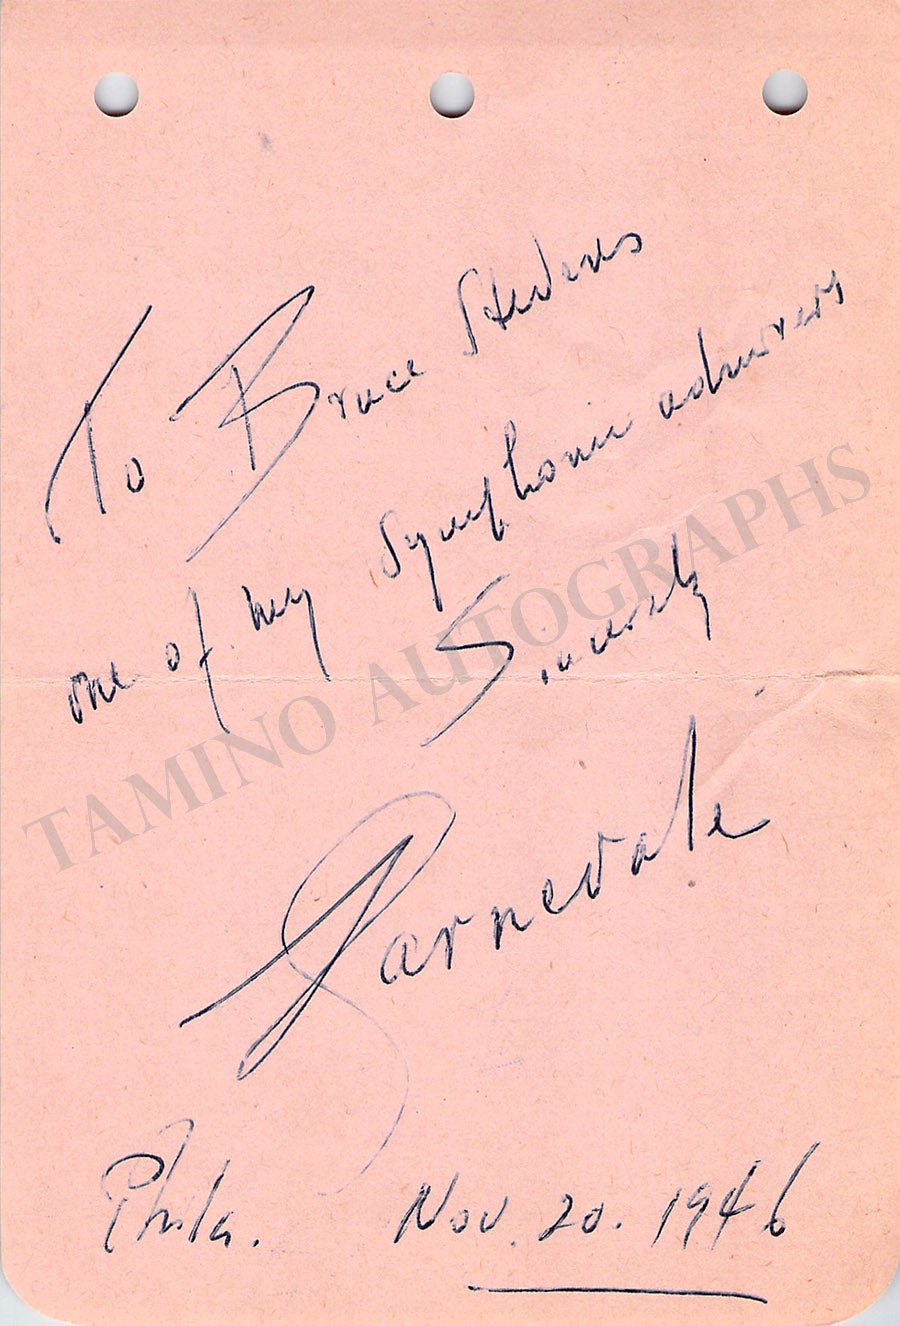 To Bruce Stevens
one of my symphonic admirers
Sincerely
Carnevale
Phila. Nov. 20. 1946
TAMINO AUTOGRAPHS